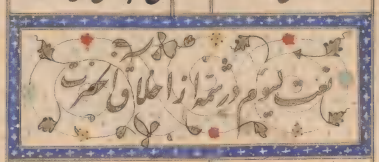 نعت سیوم در شمهٔ از اخلاق آنحضرت